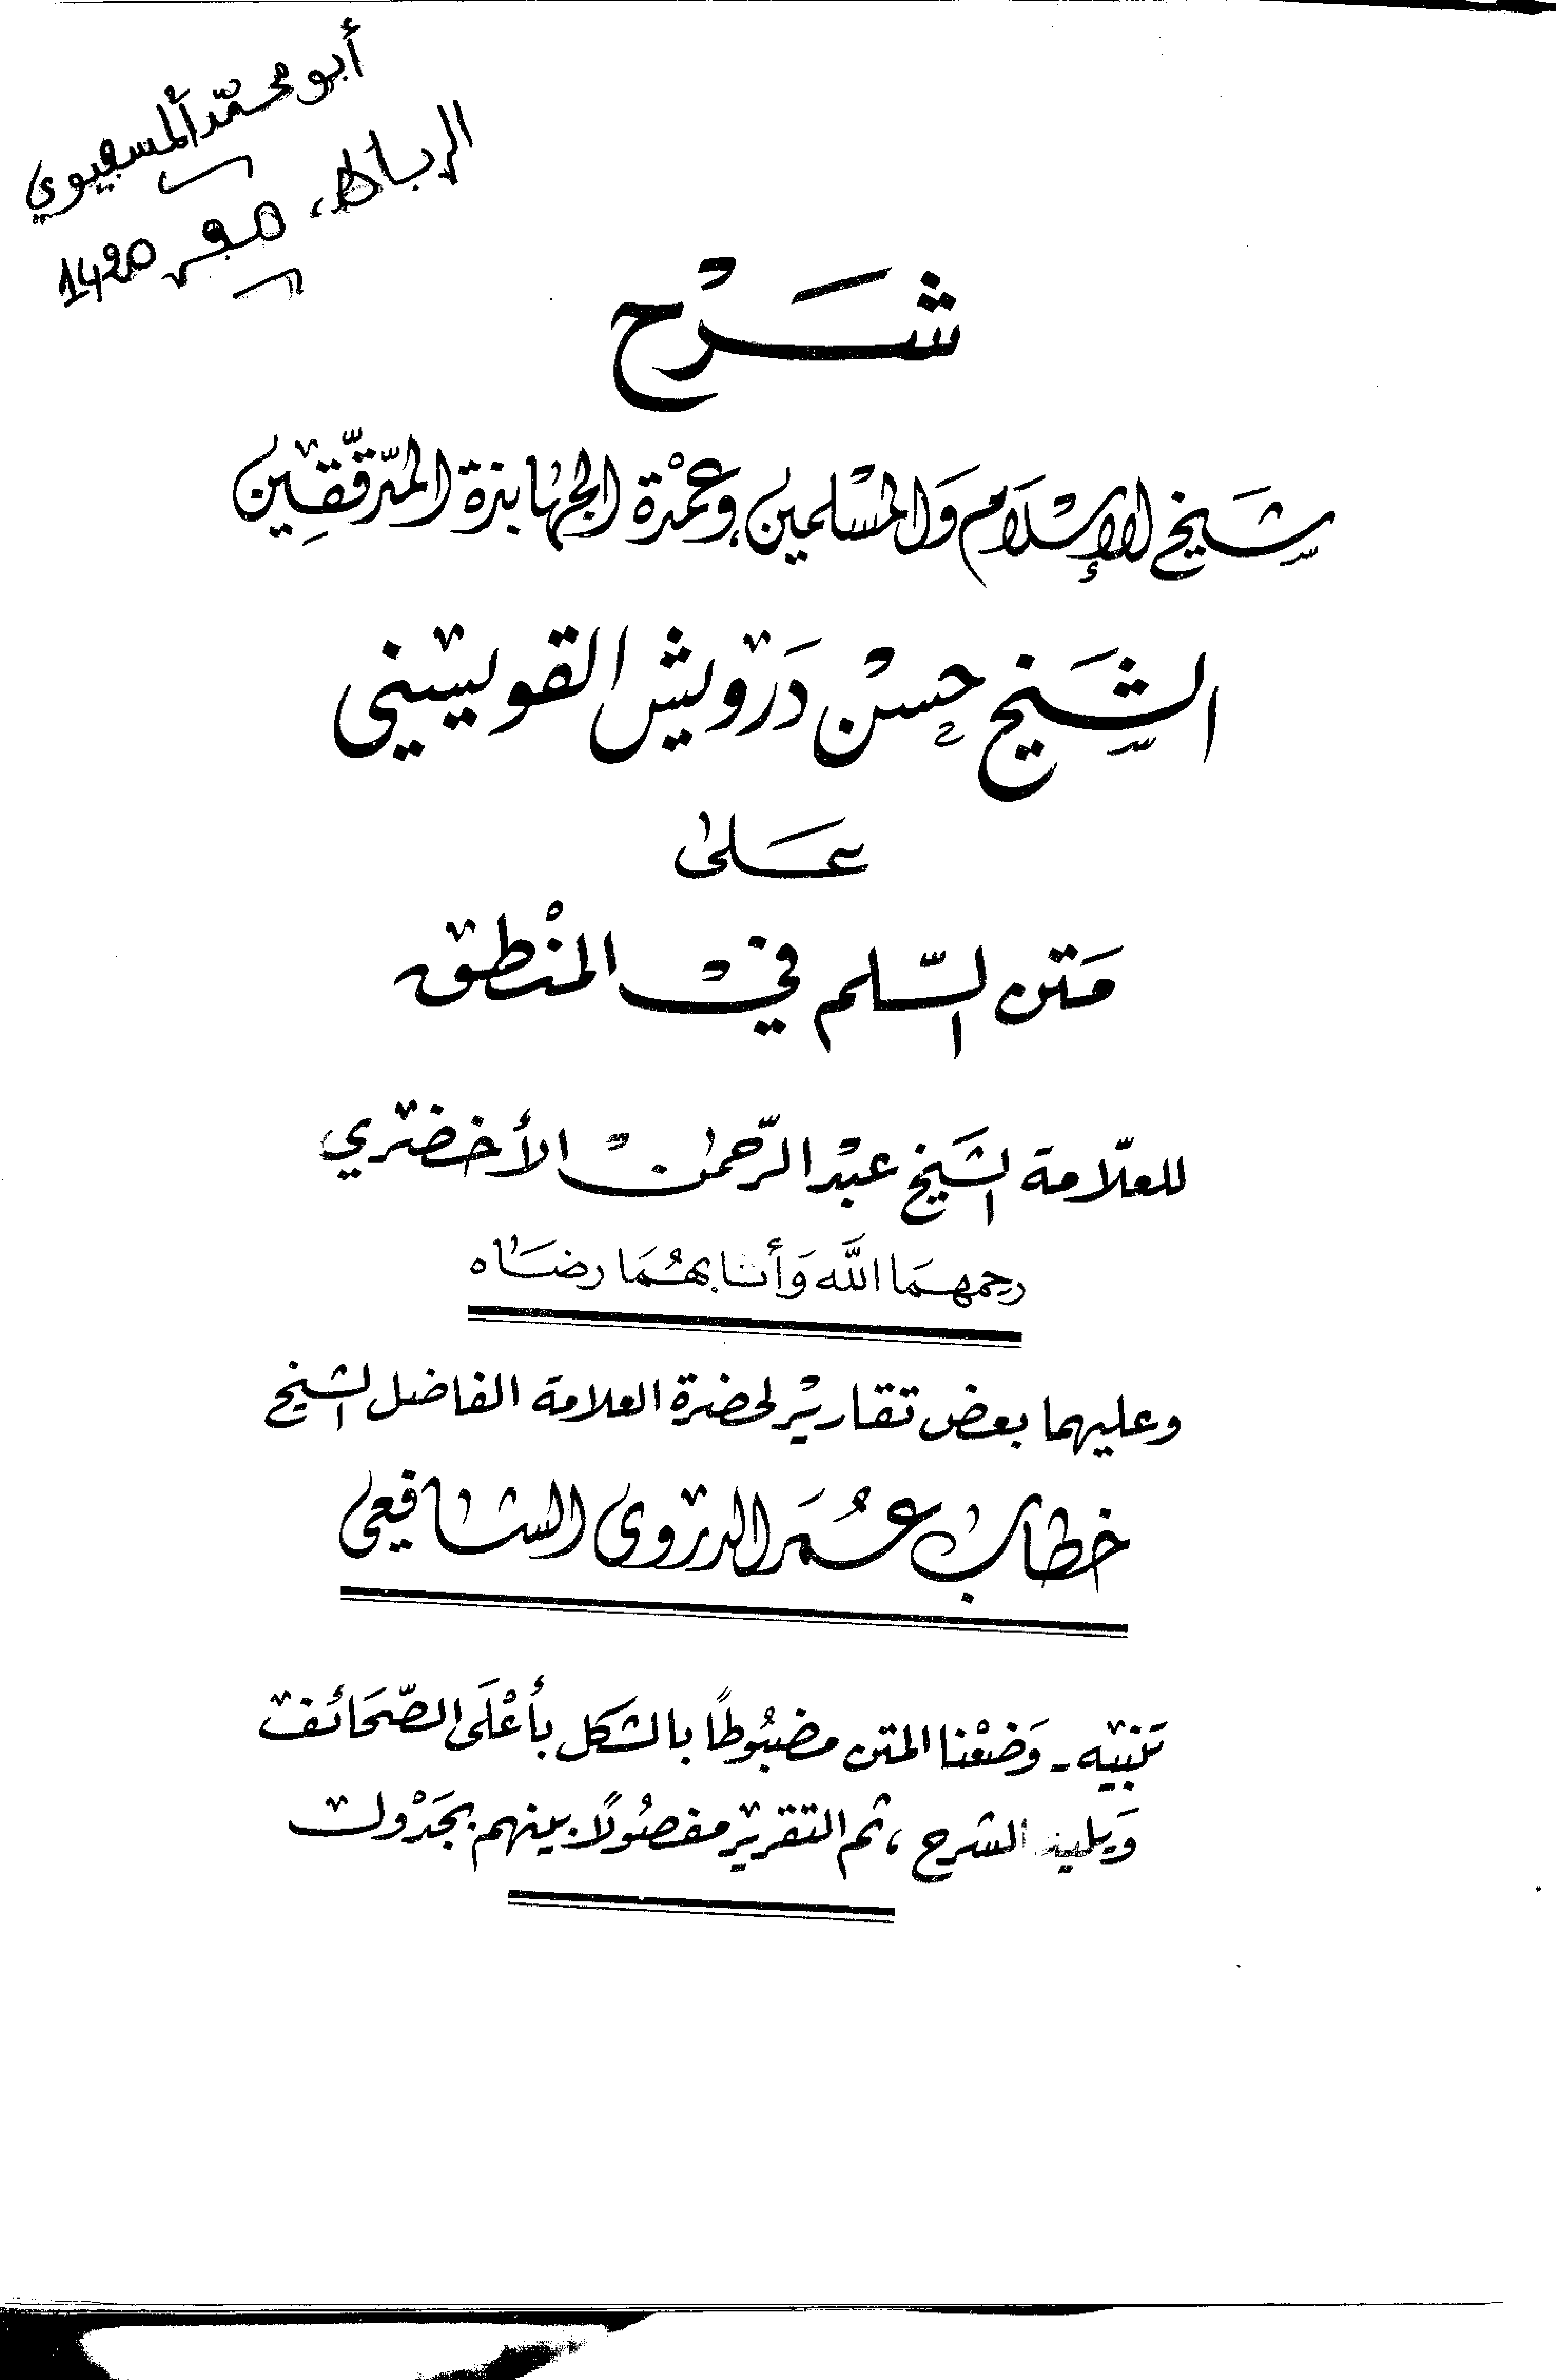 أبو محمّد المسفيوي
الرباط، صفر 1420
شَرْح
شَيخ الإِسْلَام وَالمسْلمين وعمْدة الجهابذة المدّققِين
الشَّيخ حسْن دَرويش القويسني
عَلى
مَتن السّلم فيْ المنْطق
للعلّامة الشَيخ عبْد الرّحمٰن الأخضري
رحمهمَا اللَّه وَأثابهُمَا رضَاه
وعليهما بعض تقاريْر لحضرة العلامة الفاضل الشيخ
خطاب عُمَر الدروى الشافعى
تَنبيه - وَضعْنا المتن مضبُوطاً بالشكل بأعْلَى الصّحَائف
وَيليه الشرح ، ثم التقرير مفصُولًا بينهم بجَدْول